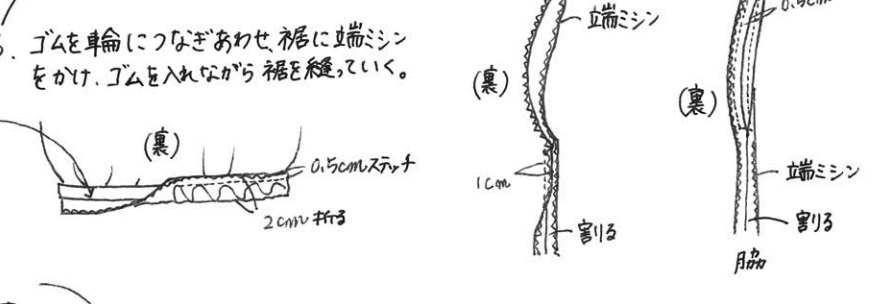 ゴムを輪につなぎあわせ、裾に端ミシン
をかけ、ゴムを入れながら裾を縫っていく。
(裏)
0.5cmステッチ
2cm折る
端ミシン
(裏)
1cm
割る
0.5cm
(裏)
端ミシン
割る
脇